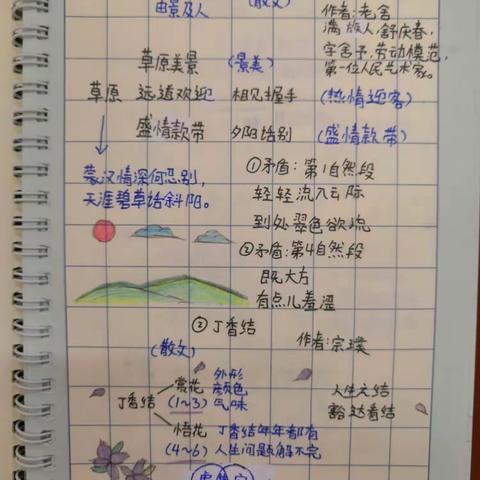 由景及人 (散文) 作者:老舍
满族人,舒庆春,
字舍予,劳动模范,
第一位人民艺术家。
草原美景 (景美)
草原 远道欢迎 相见握手 (热情迎客)
盛情款带 夕阳话别 (盛情款带)
蒙汉情深何忍别,
天涯碧草话斜阳。
①矛盾:第1自然段
轻轻流入云际
到处翠色欲流
②矛盾:第4自然段
既大方
有点儿羞涩
② 丁香结
(散文) 作者:宗璞
丁香结
赏花 外形
颜色
(1~3) 气味
悟花 丁香结年年都有
(4~6) 人生问题解不完
人生之结
豁达看结